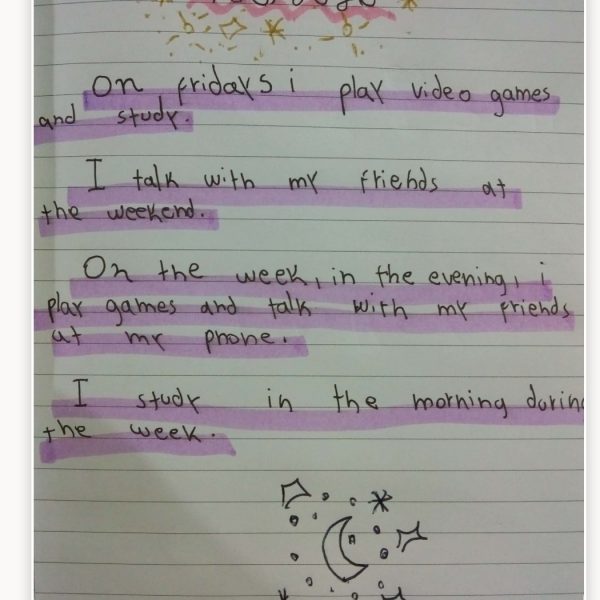 On fridays i play video games
and study.
I talk with my friends at
the weekend.
On the week, in the evening, i
play games and talk with my friends
at my phone.
I study in the morning during
the week.